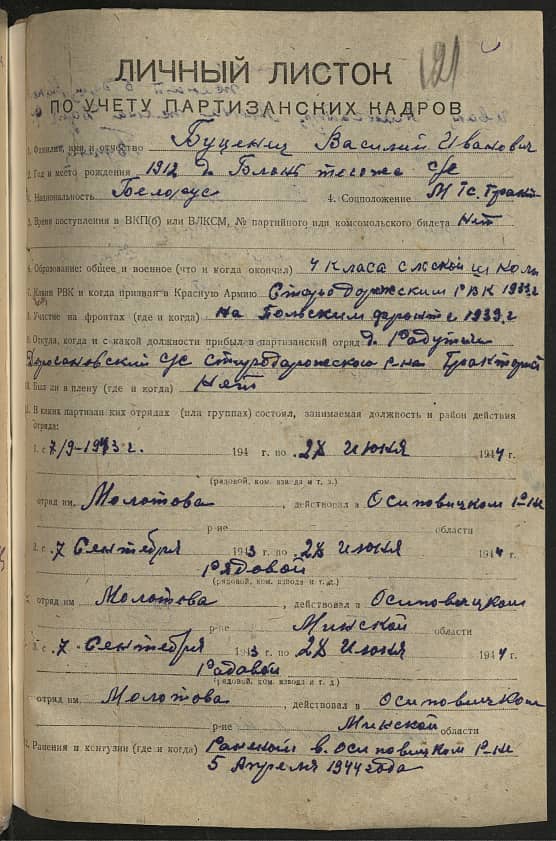 121
ЛИЧНЫЙ ЛИСТОК
ПО УЧЕТУ ПАРТИЗАНСКИХ КАДРОВ
1. Фамилия, имя и отчество Буценец Василий Иванович
2. Год и место рождения 1912 д. с/с
3. Национальность Белорус 4. Соцположение
5. Время поступления в ВКП(б) или ВЛКСМ, № партийного или комсомольского билета Нет
6. Образование: общее и военное (что и когда окончил) 4 класа школи
7. Каким РВК и когда призван в Красную Армию Стародорожским РВК 1933.г
8. Участие на фронтах (где и когда) на Польским фронт с 1939.г
9. Откуда, когда и с какой должности прибыл в партизанский отряд д. Радутичи
с/с Стародорожского р-на Тракторист
10. Был ли в плену (где и когда) Нет
11. В каких партизанских отрядах (или группах) состоял, занимаемая должность и район действия
отряда:
1. с 7/9-1943 г. 194 г. по 28 Июня 1944 г.
(рядовой, ком. взвода и т. д.)
отряд им. Молотова, действовал в Осиповичком р-не
р-не области
2. с 7 Сентября 1943 г по 28 Июня 1944 г.
Рядовой
(рядовой, ком. взвода и т. д.)
отряд им Молотова, действовал в Осиповичком
р-не Минской области
3. с 7 Сентября 1943 г. по 28 Июня 1944 г.
Радавой
(рядовой, ком. взвода и т. д)
отряд им. Молотова, действовал в Осиповичком
р-не Минской области
12. Ранения и контузии (где и когда) Раненый в. Осиповичком р-не
5 Апреля 1944 года